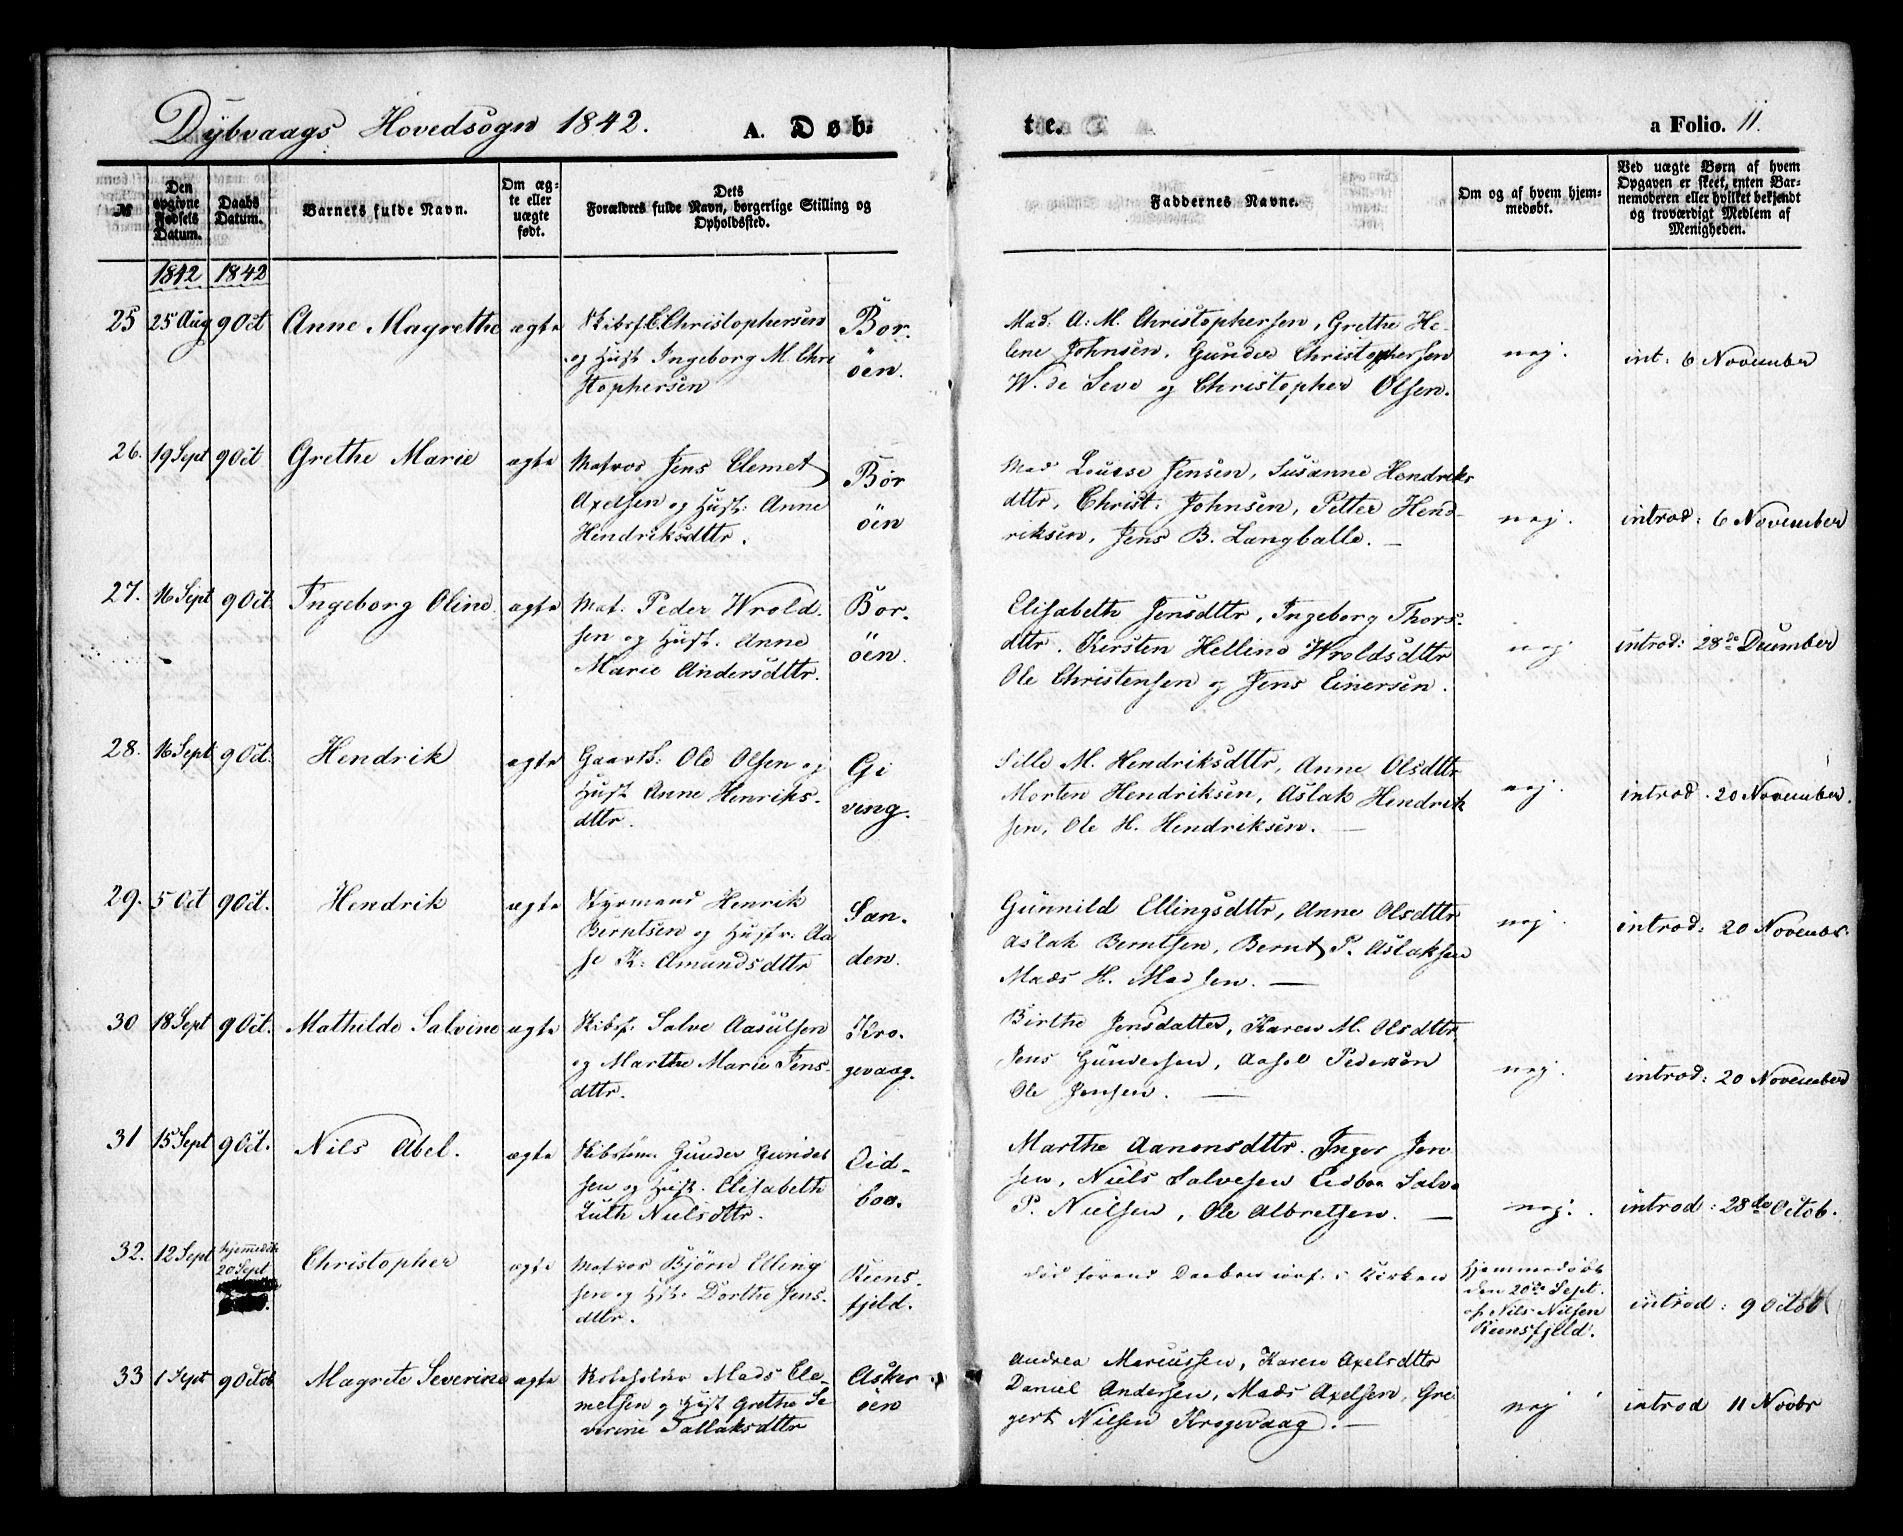 Dybvaags Hovedsogn 1842. A. Døb-
te. a Folio. 11.
№
Den opgivne Fødsels Datum.
Daabs Datum.
Barnets fulde Navn.
Om ægte eller uægte født.
Dets Forældres fulde Navn, borgerlige Stilling og Opholdssted.
Faddernes Navne.
Om og af hvem hjemmedøbt.
Ved uægte Børn af hvem Opgaven er skeet, enten Barnemoderen eller hvilket bekjendt og troværdigt Medlem af Menigheden.
1842 1842
25 25 Aug 9 Oct Anne Magrethe ægte
Skibsf. C Christophersen
og Hust Ingeborg M. Chri
stophersen
Bor.
öen.
Mad: A. M. Christophersen, Grethe He-
lene Johnsen, Gunder Christophersen
W. de Seve og Christopher Olsen.
nej.
int: 6 November
26. 19 Sept 9 Oct Grethe Marie ægte
Matros Jens Clemet
Axelsen og Hust: Anne
Hendriksdttr.
Bor
öen
Mad Louise Jensen, Susanne Hendriks
dttr, Christ: Johnsen, Petter Hend-
riksen, Jens B. Langballe. —
nej.
introd: 6 November
27. 16 Sept 9 Oct. Ingeborg Oline. ægte
Mat. Peder Wrold.
sen og Hust. Anne
Marie Andersdttr.
Bor.
öen.
Elisabeth Jensdttr, Ingeborg Thors-
dttr. Kirsten Helline Wroldsdttr
Ole Christensen og Jens Einersen.
nej
introd: 28de December
28. 16 Sept 9 Oct. Hendrik ægte
Gaarb: Ole Olsen og
Hust Anne Henriks-
dttr.
Gi
ving.
Sille M. Hendriksdttr, Anne Olsdttr
Morten Hendriksen, Aslak Hendrik
sen, Ole H. Hendriksen. —
nej.
introd. 20 November.
29. 5 Oct 9 Oct. Hendrik ægte
Styrmand Henrik
Berntsen og Hustr: Aa
se K: Amundsdttr
San.
den.
Gunnild Ellingsdttr, Anne Olsdttr
Aslak Berntsen, Bernt P. Aslaksen
Mads H. Madsen. —
nej.
introd: 20 Novembr.
30 18 Sept 9 Oct. Mathilde Salvine ægte
Skibsf. Salve Aasulsen
og Marthe Marie Jens-
dttr.
Kro.
gevaag.
Birthe Jensdatter, Karen M. Olsdttr.
Jens Gundersen, Pedersön
Ole Jensen. —
nej.
introd: 20 November
31 15 Sept 9 Oct. Nils Abel. ægte
Skibstöm. Gunder Gunder
sen og Hust. Elisabeth
Luth Nielsdttr.
Eid-
boa.
Marthe Aanonsdttr. Inger Jen
sen, Niels Salvesen Eidboa Salve
P. Nielsen, Ole Albretsen. —
nej.
introd: 28de Octob.
32. 12 Sept hjemmedöbt
20 Sept
Christopher ægte
Matros Björn Elling
sen og Hst. Dorthe Jens-
dttr.
Reens-
fjeld.
död förend Daaben i Kirken
Hjemmedöbt
den 20de Sept.
af Nils Nilsen
Reensfjeld.
introd: 9 Octob
33 1 Sept 9 Octob Magrete Severine ægte
Mads Cle-
metsen og Hust Grethe Se
verine Tallaksdttr
Asker
öen
Andrea Marcussen, Karen Axelsdttr
Daniel Andersen, Mads Axelsen, Gre-
gert Nilsen Krogevaag. —
nej
introd 11 Novbr